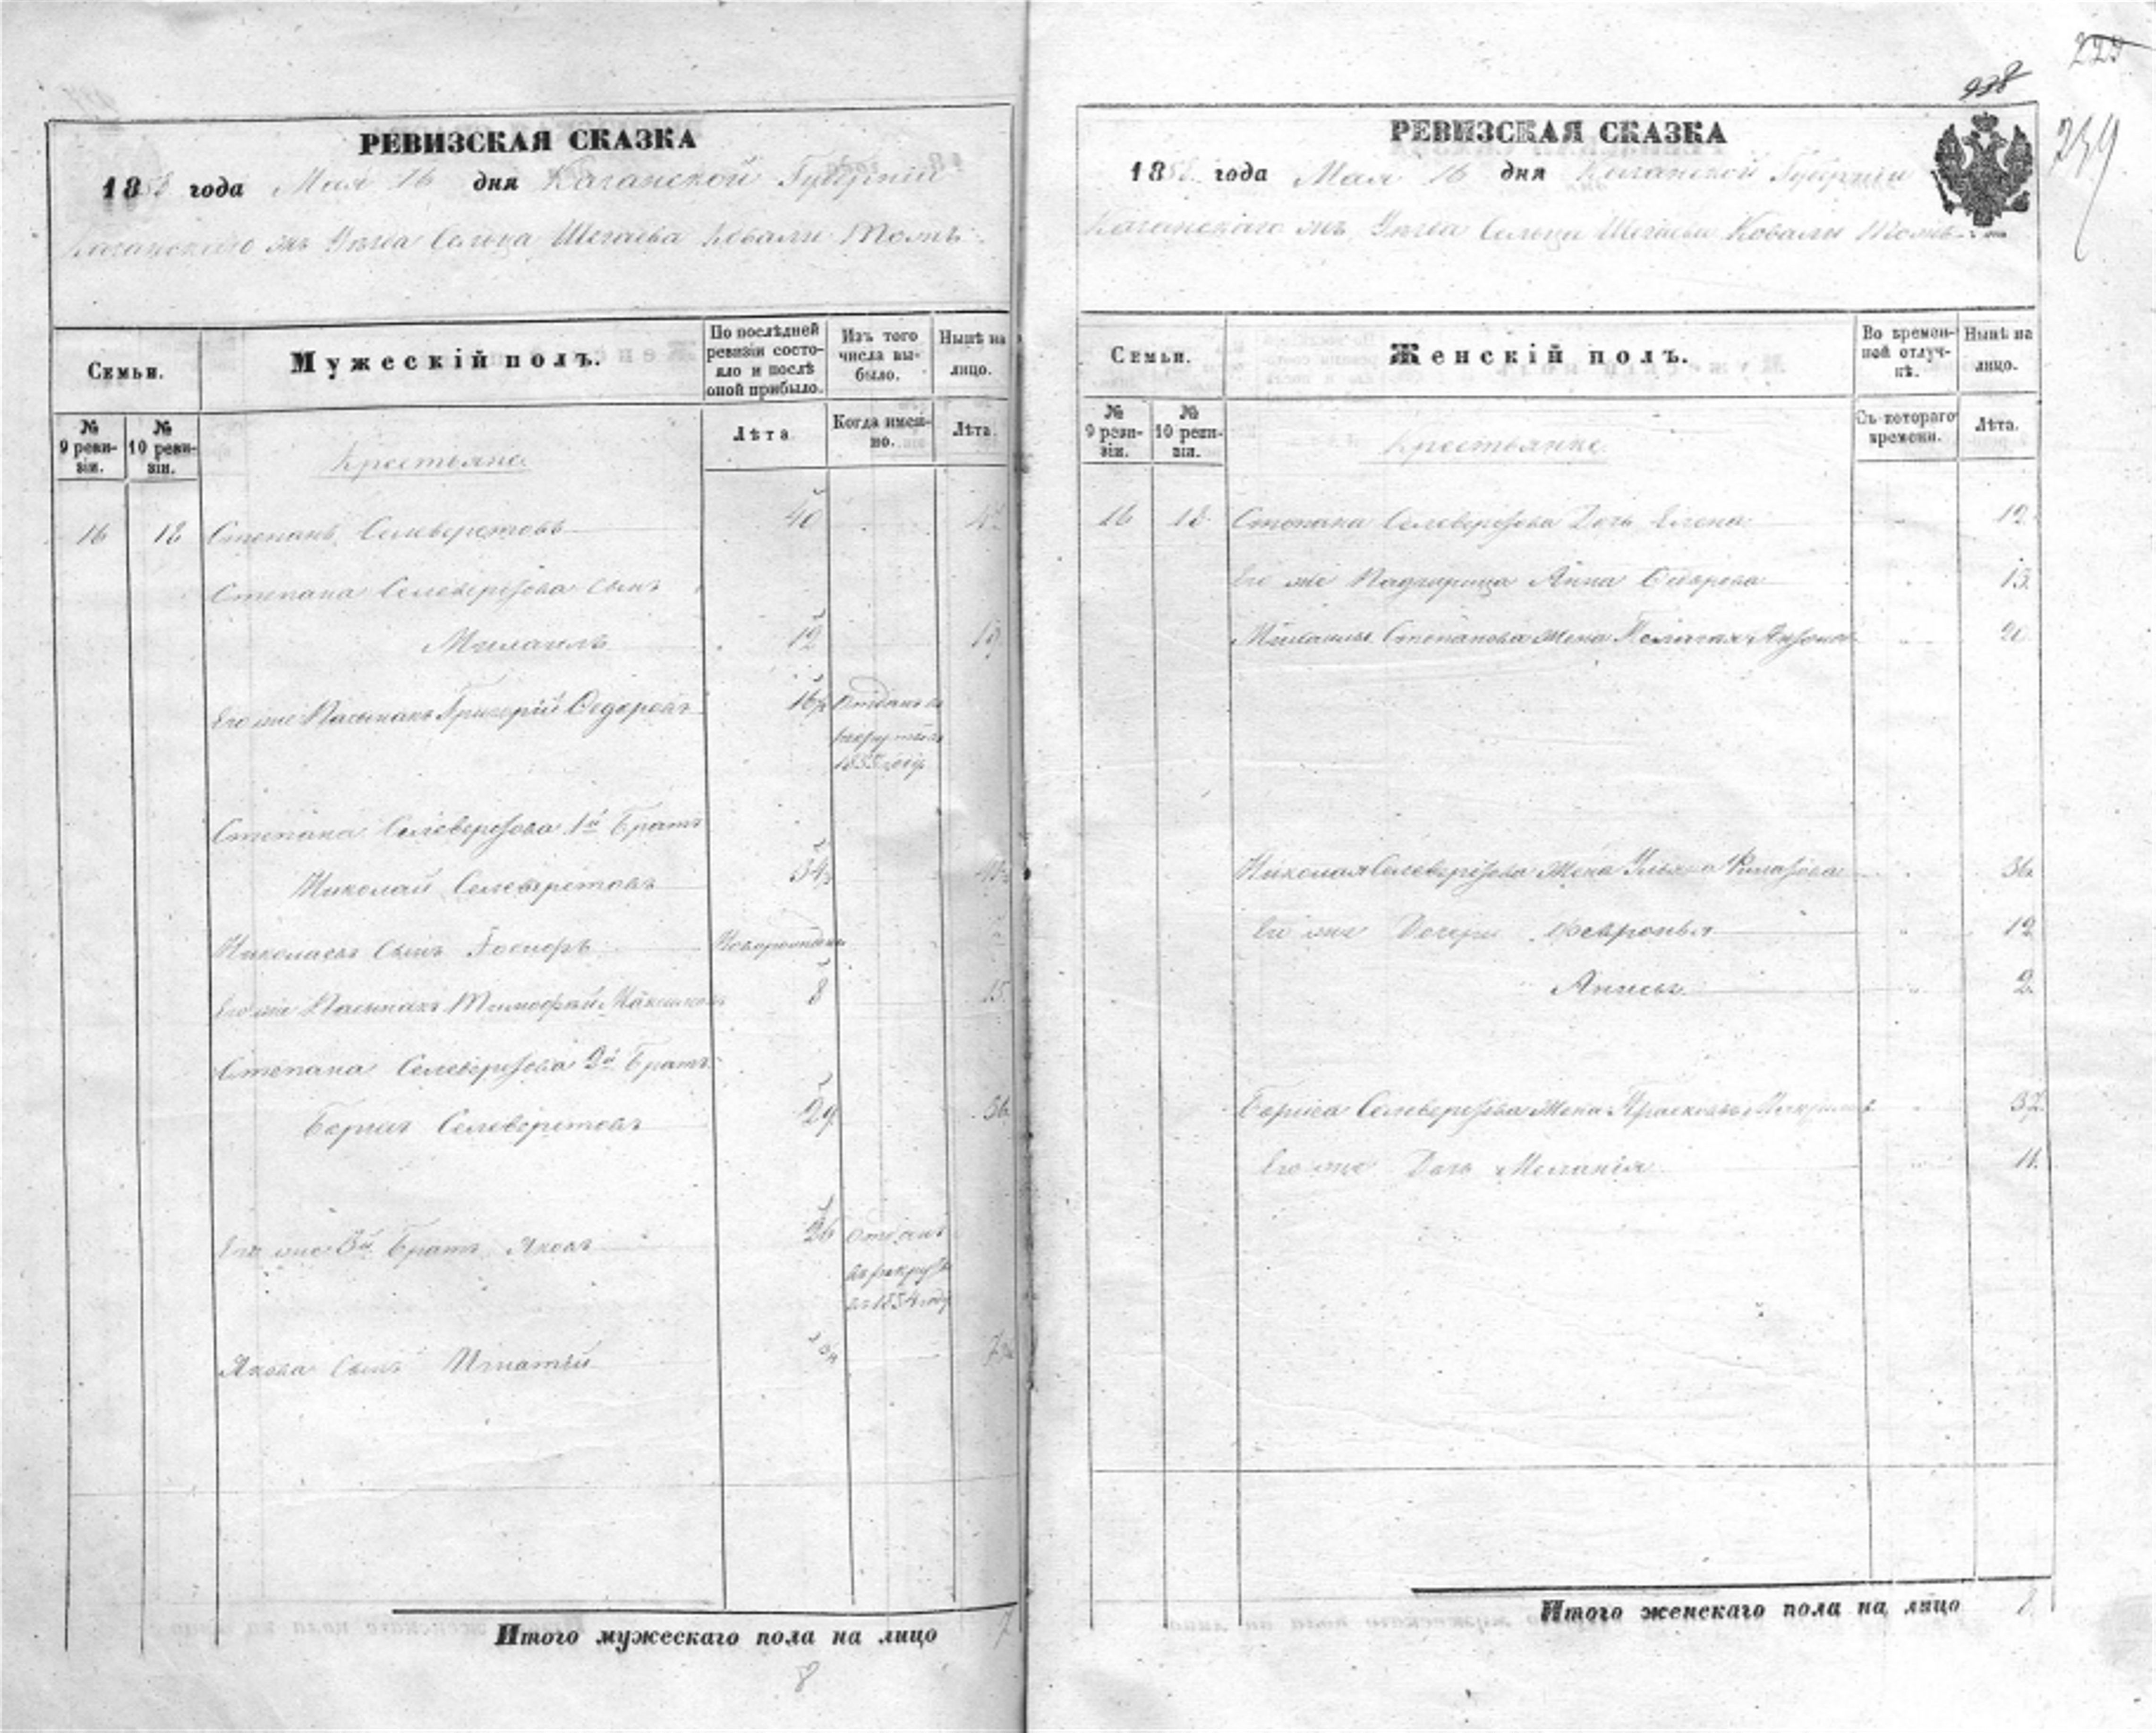 РЕВИЗСКАЯ СКАЗКА
1858 года Мая 16 дня Казанской Губернии
Казанскаго Уѣзда Сельца Шигаева Ковали тожъ
Семьи.
Мужескій полъ.
По послѣдней ревизіи состояло и послѣ оной прибыло.
Изъ того числа выбыло.
Нынѣ на лицо.
№ 9 ревизіи.
№ 10 ревизіи.
Крестьяне
Лѣта
Когда именно.
Лѣта.
16 Степанъ Селеверстовъ 40
Степана Селеверстова сынъ
Михаилъ 12 19
Его же Пасынокъ Григорій Федоровъ 16 Отданъ въ
рекруты
1855 году
Степана Селеверстова 1й Братъ
Николай Селеверстовъ 34
Николаевъ Сынъ новорожденъ
Его же Пасынокъ Тимофей 8 15
Степана Селеверстова 2й Братъ
Борисъ Селеверстовъ 29 36
Его же 3й Братъ Яковъ 26 Отданъ
въ рекруты
въ 1854 году
Якова Сынъ Игнатій
Итого мужескаго пола на лицо 7
8
225
938
239
РЕВИЗСКАЯ СКАЗКА
1858 года Мая 16 дня Казанской Губерніи
Казанскаго Уѣзда Сельца Шигаева Ковали тожъ
Семьи.
Женскій полъ.
Во временной отлучкѣ.
Нынѣ на лицо.
№ 9 ревизіи.
№ 10 ревизіи.
Крестьянке
Съ котораго времени.
Лѣта.
16 Степана Селеверстова Дочь Елена 12
Его же Падчерица Анна Федорова 15
Михаилы Степанова жена Пелагея 20
Николая Селеверстова Жена Ульяна 36
Его же Дочери Февронья 12
Анисья 2
Бориса Селеверстова Жена Прасковья 37
Его же Дочь Меланія 11
Итого женскаго пола на лицо 8